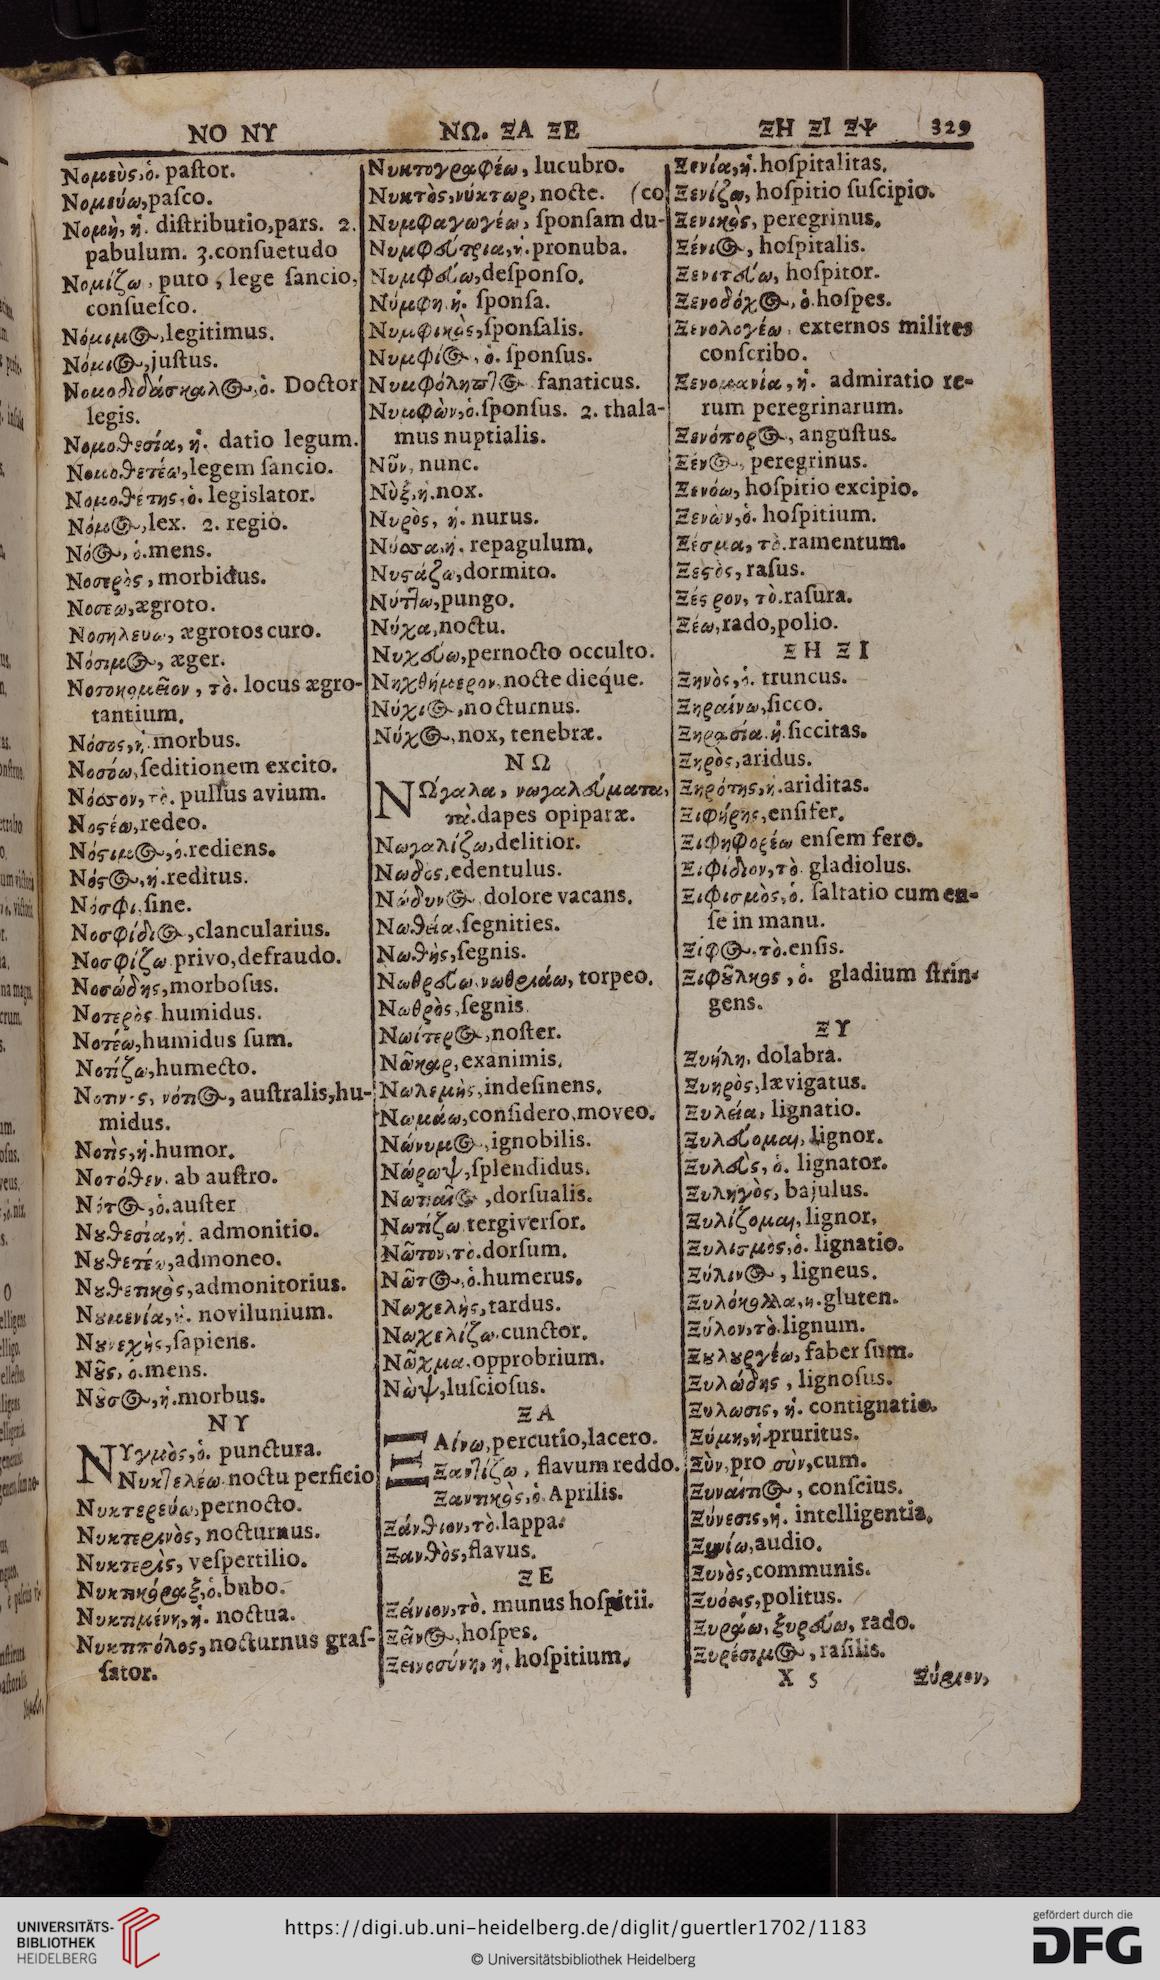 NO NΥ
NΩ. ΞΑ ΞΕ
ΞΗ ΞΙ ΞΨ 329
Νομεὺς, ὁ. paſtor.
Νομεύω, paſco.
Νομὴ, ἡ. diſtributio, pars. 2.
pabulum. 3. conſuetudo
Νομίζω, puto, lege ſancio,
conſueſco.
Νόμιμος, legitimus.
Νόμιος, juſtus.
Νομοδιδάσκαλος, ὁ. Doctor
legis.
Νομοθεσία, ἡ. datio legum.
Νομοθετέω, legem ſancio.
Νομοθέτης, ὁ. legislator.
Νόμος, lex. 2. regio.
Νόος, ὁ. mens.
Νοσερὸς, morbidus.
Νοσεω, ægroto.
Νοσηλευω, ægrotos curo.
Νόσιμος, æger.
Νοσοκομεῖον, τὸ. locus ægro-
tantium.
Νόσος, ἡ. morbus.
Νοσόω, ſeditionem excito.
Νόσσον, τὸ. pullus avium.
Νοστέω, redeo.
Νόστιμος, ὁ. rediens.
Νόστος, ἡ. reditus.
Νόσφι, ſine.
Νοσφίδιος, clancularius.
Νοσφίζω privo, defraudo.
Νοσώδης, morboſus.
Νοτερὸς humidus.
Νοτέω, humidus ſum.
Νοτίζω, humecto.
Νοτινὸς, νότιος, auſtralis, hu-
midus.
Νοτὶς, ἡ. humor.
Νοτόθεν. ab auſtro.
Νότος, ὁ. auſter
Νουθεσία, ἡ. admonitio.
Νουθετέω, admoneo.
Νουθετικὸς, admonitorius.
Νουμενία, ἡ. novilunium.
Νουνεχὴς, ſapiens.
Νοῦς, ὁ. mens.
Νοῦσος, ἡ. morbus.
ΝΥ
ΝΥγμὸς, ὁ. punctura.
Νυκτελέω noctu perficio
Νυκτερεύω, pernocto.
Νυκτερινὸς, nocturnus.
Νυκτερὶς, veſpertilio.
Νυκτικόραξ, ὁ. bubo.
Νυκτιμένη, ἡ. noctua.
Νυκτιπόλος, nocturnus graſ-
ſator.
Νυκτογραφέω, lucubro.
Νυκτὸς, νύκτωρ, nocte. (co
Νυμφαγωγέω, ſponſam du-
Νυμφεύτρια, ἡ. pronuba.
Νυμφεύω, deſponſo.
Νύμφη, ἡ. ſponſa.
Νυμφικὸς, ſponſalis.
Νυμφίος, ὁ. ſponſus.
Νυμφόληπτος fanaticus.
Νυμφὼν, ὁ. ſponſus. 2. thala-
mus nuptialis.
Νῦν, nunc.
Νὺξ, ἡ. nox.
Νυρὸς, ἡ. nurus.
Νύσσα, ἡ. repagulum.
Νυστάζω, dormito.
Νύττω, pungo.
Νύχα, noctu.
Νυχεύω, pernocto occulto.
Νηχθήμερον, nocte dieque.
Νύχιος, nocturnus.
Νύχος, nox, tenebræ.
ΝΩ
ΝΩγαλα, νωγαλεύματα,
τὰ. dapes opiparæ.
Νωγαλίζω, delitior.
Νωδος, edentulus.
Νώδυνος, dolore vacans.
Νωθεία, ſegnities.
Νωθὴς, ſegnis.
Νωθρεύω, νωθριάω, torpeo.
Νωθρὸς, ſegnis.
Νωίτερος, noſter.
Νῶκαρ, exanimis.
Νωλεμὴς, indeſinens.
Νωμάω, conſidero, moveo.
Νώνυμος, ignobilis.
Νώροψ, ſplendidus.
Νωτιαῖος, dorſualis.
Νωτίζω tergiverſor.
Νῶτον, τὸ. dorſum.
Νῶτος, ὁ. humerus.
Νωχελὴς, tardus.
Νωχελίζω, cunctor.
Νῶχμα, opprobrium.
Νὼψ, luſcioſus.
ΞΑ
ΞΑίνω, percutio, lacero.
Ξαντίζω, flavum reddo.
Ξαντικὸς, ὁ. Aprilis.
Ξάνθιον, τὸ. lappa.
Ξανθὸς, flavus.
ΞΕ
Ξείνιον, τὸ. munus hoſpitii.
Ξεῖνος, hoſpes.
Ξεινοσύνη, ἡ. hoſpitium.
Ξενία, ἡ. hoſpitalitas.
Ξενίζω, hoſpitio ſuſcipio.
Ξενικὸς, peregrinus.
Ξένιος, hoſpitalis.
Ξενιτεύω, hoſpitor.
Ξενοδόχος, ὁ. hoſpes.
Ξενολογέω, externos milites
conſcribo.
Ξενομανία, ἡ. admiratio re-
rum peregrinarum.
Ξενόπορος, anguſtus.
Ξένος, peregrinus.
Ξενόω, hoſpitio excipio.
Ξενὼν, ὁ. hoſpitium.
Ξέσμα, τὸ. ramentum.
Ξεστὸς, raſus.
Ξέστρον, τὸ. raſura.
Ξέω, rado, polio.
ΞΗ ΞΙ
Ξηνὸς, ὁ. truncus.
Ξηραίνω, ſicco.
Ξηρασία, ἡ. ſiccitas.
Ξηρὸς, aridus.
Ξηρότης, ἡ. ariditas.
Ξιφήρης, enſifer.
Ξιφηφορέω enſem fero.
Ξιφίδιον, τὸ. gladiolus.
Ξιφισμὸς, ὁ. ſaltatio cum en-
ſe in manu.
Ξίφος, τὸ. enſis.
Ξιφουλκος, ὁ. gladium ſtrin-
gens.
ΞΥ
Ξυήλη, dolabra.
Ξυηρὸς, lævigatus.
Ξυλεία, lignatio.
Ξυλεύομαι, lignor.
Ξυλεὺς, ὁ. lignator.
Ξυληγὸς, bajulus.
Ξυλίζομαι, lignor.
Ξυλισμὸς, ὁ. lignatio.
Ξύλινος, ligneus.
Ξυλόκολλα, η. gluten.
Ξύλον, τὸ. lignum.
Ξυλουργέω, faber ſum.
Ξυλώδης, lignoſus.
Ξυλωσις, ἡ. contignatio.
Ξύμη, ἡ. pruritus.
Ξὺν, pro σὺν, cum.
Ξυναίτιος, conſcius.
Ξύνεσις, ἡ. intelligentia.
Ξυνίω, audio.
Ξυνὸς, communis.
Ξυόεις, politus.
Ξυράω, ξυρεύω, rado.
Ξυρέσιμος, raſilis.
X 5 Ξύριον,
UNIVERSITÄTS-
BIBLIOTHEK
HEIDELBERG
https://digi.ub.uni-heidelberg.de/diglit/guertler1702/1183
© Universitätsbibliothek Heidelberg
gefördert durch die
DFG